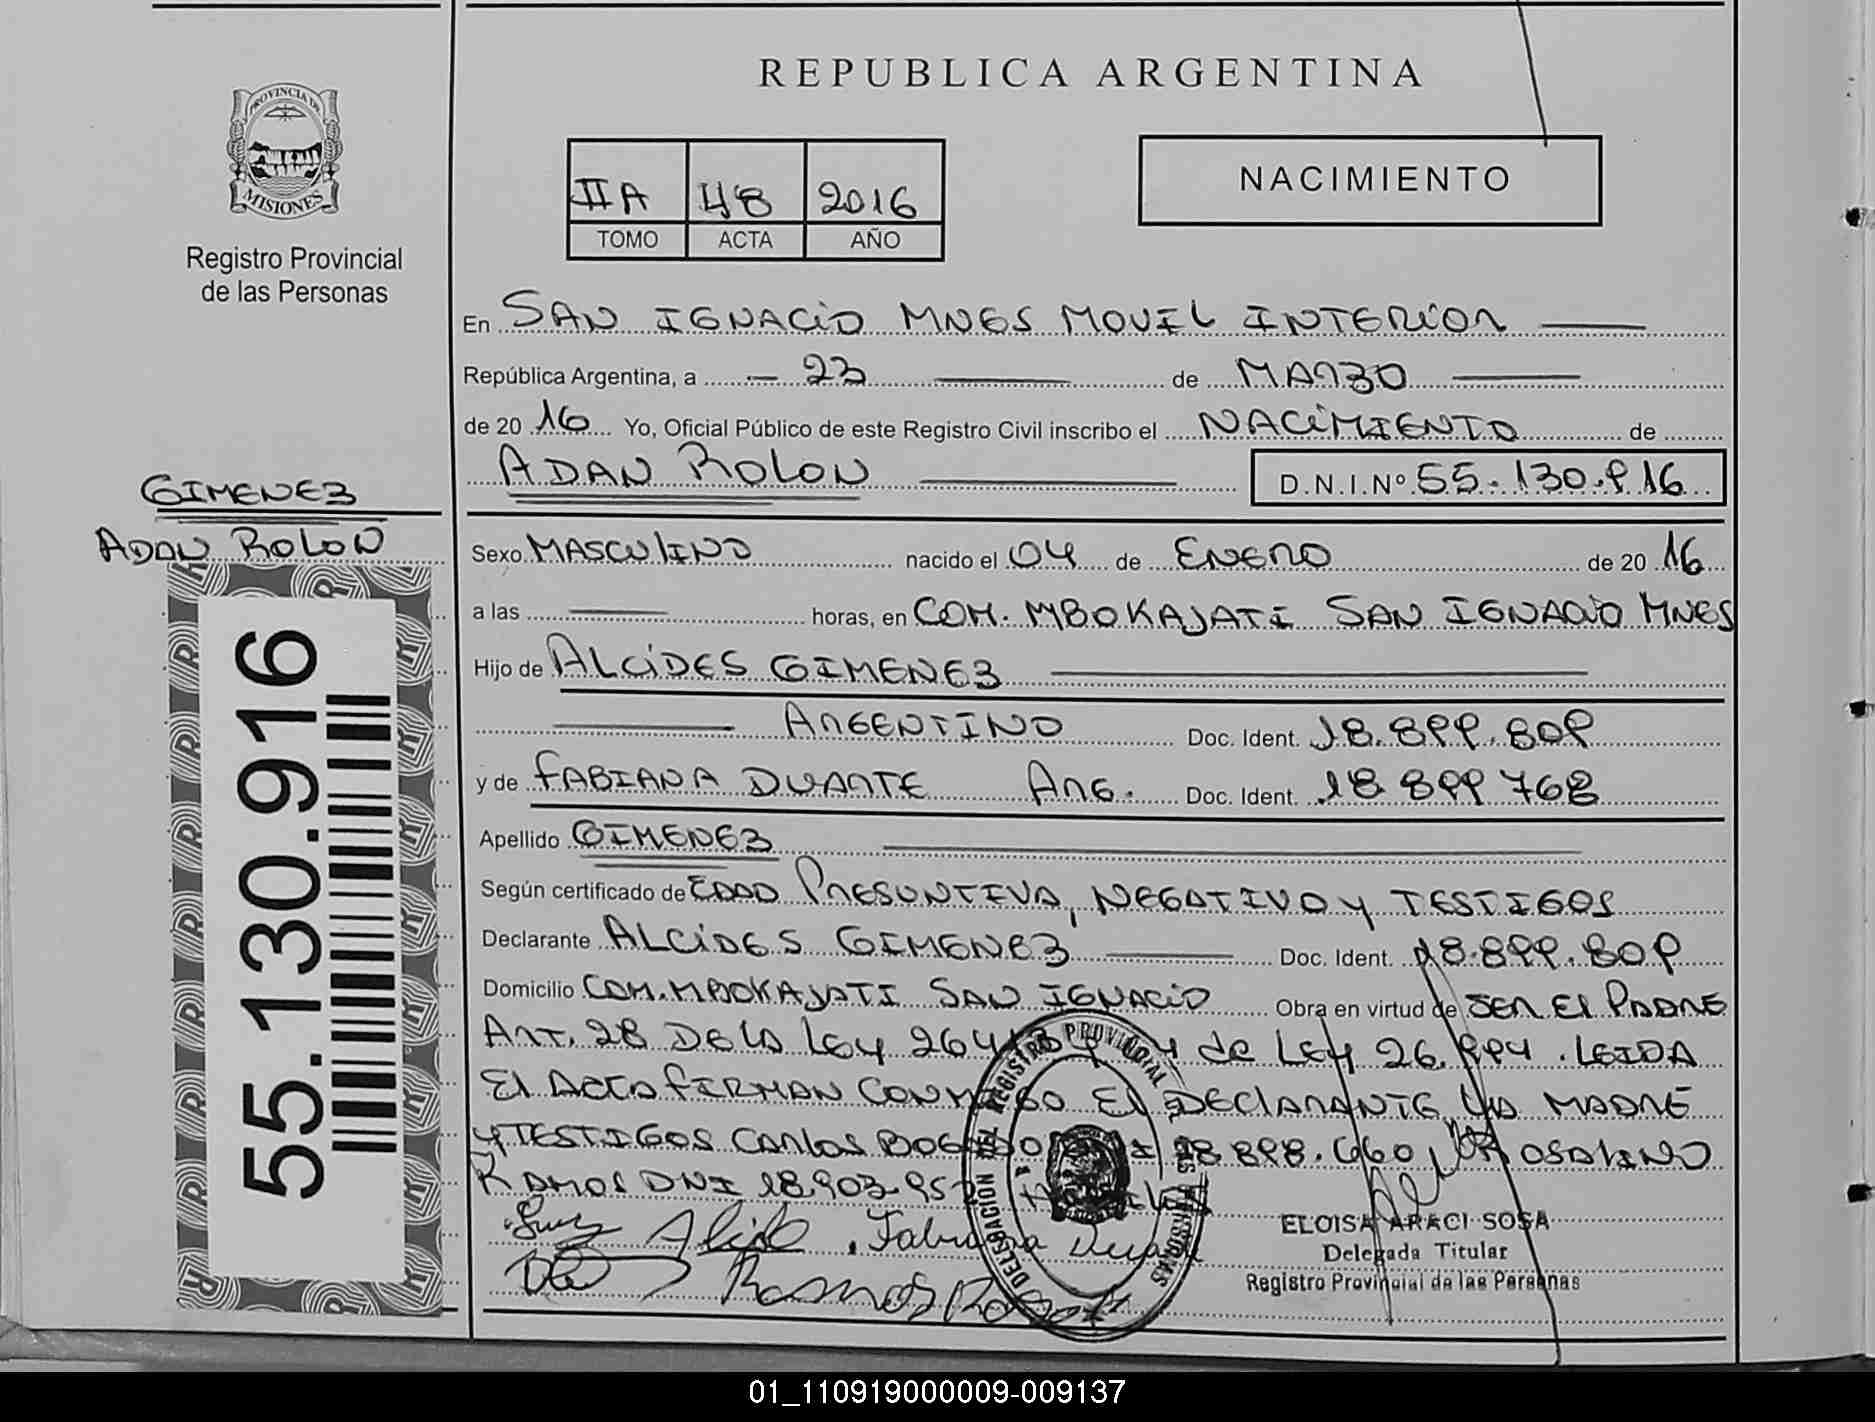 REPUBLICA ARGENTINA
PROVINCIA DE
MISIONES
Registro Provincial
de las Personas
IIA 48 2016
TOMO ACTA AÑO
NACIMIENTO
En SAN IGNACIO MNES MOVIL INTERIOR
República Argentina, a 23 de MARZO
de 20 16 Yo, Oficial Público de este Registro Civil inscribo el NACIMIENTO de
ADAN ROLON D.N.I.Nº 55.130.916
GIMENEZ
ADAN ROLON
55.130.916
Sexo MASCULINO nacido el 04 de ENERO de 20 16
a las horas, en COM. MBOKAJATI SAN IGNACIO MNES
Hijo de ALCIDES GIMENEZ
ARGENTINO Doc. Ident. 18.899.809
y de FABIANA DUARTE ARG. Doc. Ident. 18 899 768
Apellido GIMENEZ
Según certificado de EDAD PRESUNTIVA, NEGATIVO Y TESTIGOS
Declarante ALCIDES GIMENEZ Doc. Ident. 18.899.809
Domicilio COM. MBOKAJATI SAN IGNACIO Obra en virtud de SER EL PADRE
ART. 28 DE LA LEY 26413 Y de LEY 26.994 . LEIDA
El ACTA FIRMAN CONMIGO El DECLARANTE, LA MADRE
Y TESTIGOS CARLOS BOGADO 18 898.660 Y ROSALINO
RAMOS DNI 18.903.95
Fabiana Duarte
Ramos
REGISTRO PROVINCIAL DE LAS PERSONAS
DELEGACION
ELOISA ARACI SOSA
Delegada Titular
Registro Provincial de las Personas
01_110919000009-009137